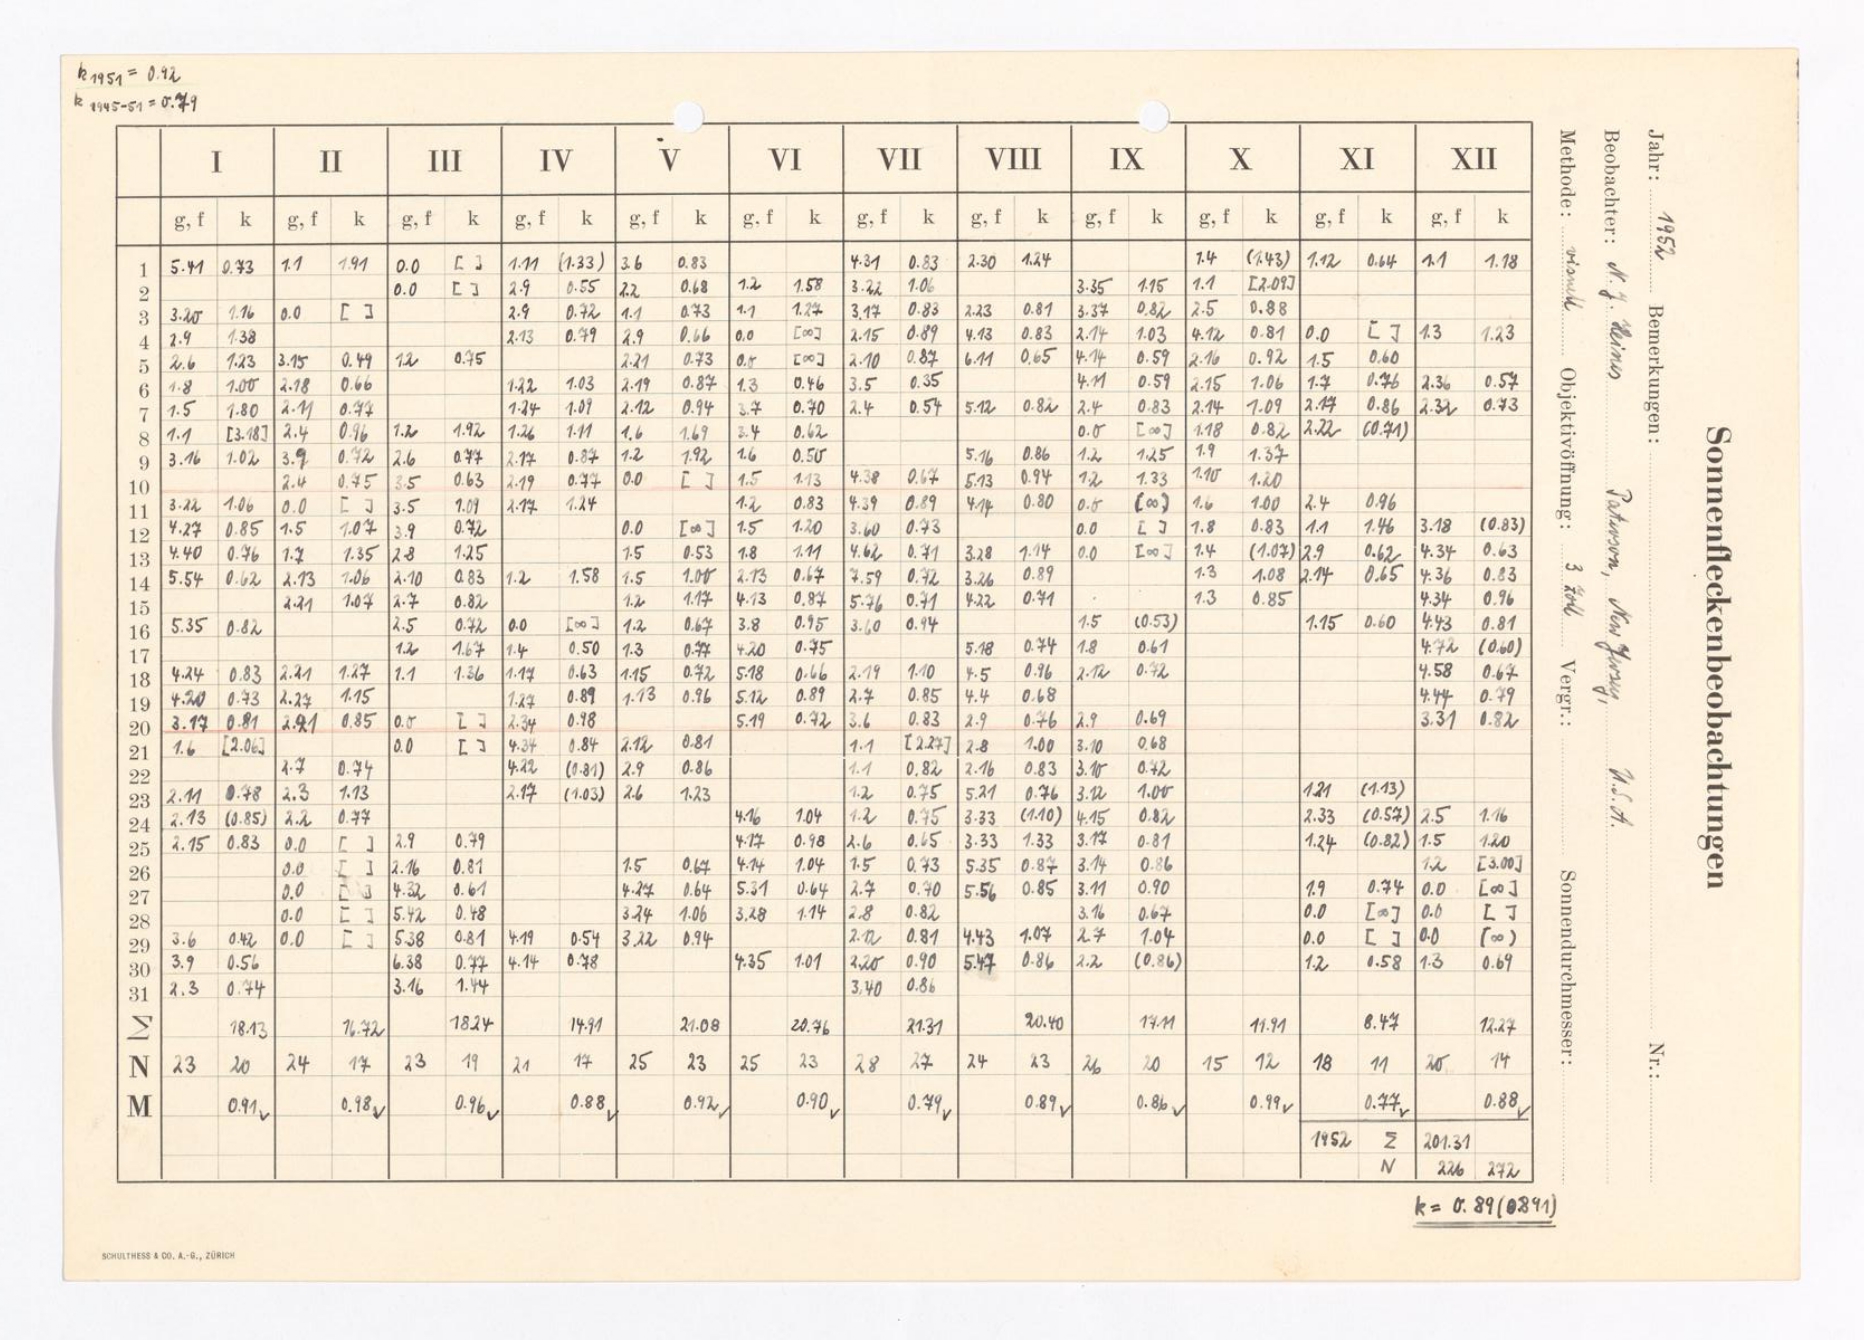 k 1951 = 0.92
k 1945-51 = 0.79
I II III IV V VI VII VIII IX X XI XII
g, f k g, f k g, f k g, f k g, f k g, f k g, f k g, f k g, f k g, f k g, f k g, f k
1 5.41 0.73 1.1 1.91 0.0 [ ] 1.11 (1.33) 3.6 0.83 4.31 0.83 2.30 1.24 1.4 (1.43) 1.12 0.64 1.1 1.18
2 0.0 [ ] 2.9 0.55 2.2 0.68 1.2 1.58 3.22 1.06 3.35 1.15 1.1 [2.09]
3 3.20 1.16 0.0 [ ] 2.9 0.72 1.1 0.73 1.1 1.27 3.17 0.83 2.23 0.81 3.37 0.82 2.5 0.88
4 2.9 1.38 2.13 0.79 2.9 0.66 0.0 [∞] 2.15 0.89 4.13 0.83 2.14 1.03 4.12 0.81 0.0 [ ] 1.3 1.23
5 2.6 1.23 3.15 0.49 1.2 0.75 2.21 0.73 0.0 [∞] 2.10 0.87 6.11 0.65 4.14 0.59 2.16 0.92 1.5 0.60
6 1.8 1.00 2.18 0.66 1.22 1.03 2.19 0.87 1.3 0.46 3.5 0.35 4.11 0.59 2.15 1.06 1.7 0.76 2.36 0.57
7 1.5 1.80 2.11 0.77 1.24 1.09 2.12 0.94 3.7 0.70 2.4 0.54 5.12 0.82 2.4 0.83 2.14 1.09 2.17 0.86 2.32 0.73
8 1.1 [3.18] 2.4 0.96 1.2 1.92 1.26 1.11 1.6 1.69 3.4 0.62 0.0 [∞] 1.18 0.82 2.22 (0.71)
9 3.16 1.02 3.9 0.72 2.6 0.77 2.17 0.87 1.2 1.92 1.6 0.50 5.16 0.86 1.2 1.25 1.9 1.37
10 2.4 0.75 3.5 0.63 2.19 0.77 0.0 [ ] 1.5 1.13 4.38 0.67 5.13 0.94 1.2 1.33 1.10 1.20
11 3.22 1.06 0.0 [ ] 3.5 1.09 2.17 1.24 1.2 0.83 4.39 0.89 4.14 0.80 0.0 [∞] 1.6 1.00 2.4 0.96
12 4.27 0.85 1.5 1.07 3.9 0.72 0.0 [∞] 1.5 1.20 3.60 0.73 0.0 [ ] 1.8 0.83 1.1 1.46 3.18 (0.83)
13 4.40 0.76 1.7 1.35 2.8 1.25 1.5 0.53 1.8 1.11 4.62 0.71 3.28 1.14 0.0 [∞] 1.4 (1.07) 2.9 0.62 4.34 0.63
14 5.54 0.62 2.13 1.06 2.10 0.83 1.2 1.58 1.5 1.00 2.13 0.67 7.59 0.72 3.26 0.89 1.3 1.08 2.14 0.65 4.36 0.83
15 2.21 1.07 2.7 0.82 1.2 1.17 4.13 0.87 5.76 0.71 4.22 0.71 1.3 0.85 4.34 0.96
16 5.35 0.82 2.5 0.72 0.0 [∞] 1.2 0.67 3.8 0.95 3.60 0.94 1.5 (0.53) 1.15 0.60 4.43 0.81
17 1.2 1.67 1.4 0.50 1.3 0.77 4.20 0.75 5.18 0.74 1.8 0.61 4.72 (0.60)
18 4.24 0.83 2.21 1.27 1.1 1.36 1.17 0.63 1.15 0.72 5.18 0.66 2.19 1.10 4.5 0.96 2.12 0.72 4.58 0.67
19 4.20 0.73 2.27 1.15 1.27 0.89 1.13 0.96 5.12 0.89 2.7 0.85 4.4 0.68 4.44 0.79
20 3.17 0.81 2.21 0.85 0.0 [ ] 2.34 0.98 5.19 0.72 3.6 0.83 2.9 0.76 2.9 0.69 3.31 0.82
21 1.6 [2.06] 0.0 [ ] 4.34 0.84 2.12 0.81 1.1 [2.27] 2.8 1.00 3.10 0.68
22 2.7 0.74 4.22 (0.81) 2.9 0.86 1.1 0.82 2.16 0.83 3.10 0.72
23 2.11 0.78 2.3 1.13 2.17 (1.03) 2.6 1.23 1.2 0.75 5.21 0.76 3.12 1.00 1.21 (1.13)
24 2.13 (0.85) 2.2 0.77 4.16 1.04 1.2 0.75 3.33 (1.10) 4.15 0.82 2.33 (0.57) 2.5 1.16
25 2.15 0.83 0.0 [ ] 2.9 0.79 4.17 0.98 2.6 0.65 3.33 1.33 3.17 0.81 1.24 (0.82) 1.5 1.20
26 0.0 [ ] 2.16 0.81 1.5 0.67 4.14 1.04 1.5 0.73 5.35 0.87 3.14 0.86 1.2 [3.00]
27 0.0 [ ] 4.32 0.61 4.27 0.64 5.31 0.64 2.7 0.70 5.56 0.85 3.11 0.90 1.9 0.74 0.0 [∞]
28 0.0 [ ] 5.42 0.48 3.24 1.06 3.28 1.14 2.8 0.82 3.16 0.67 0.0 [∞] 0.0 [ ]
29 3.6 0.42 0.0 [ ] 5.38 0.81 4.19 0.54 3.22 0.94 2.12 0.81 4.43 1.07 2.7 1.04 0.0 [ ] 0.0 (∞)
30 3.9 0.56 6.38 0.77 4.14 0.78 4.35 1.01 2.20 0.90 5.47 0.86 2.2 (0.86) 1.2 0.58 1.3 0.69
31 2.3 0.74 3.16 1.44 3.40 0.86
Σ 18.13 16.72 18.24 14.91 21.08 20.76 21.31 20.40 17.11 11.91 8.47 12.27
N 23 20 24 17 23 19 21 17 25 23 25 23 28 27 24 23 26 20 15 12 18 11 20 14
M 0.91 0.98 0.96 0.88 0.92 0.90 0.79 0.89 0.86 0.99 0.77 0.88
1952 Σ 201.31
N 226 272
k = 0.89 (0891)
SCHULTHESS & CO. A.-G., ZÜRICH
Sonnenfleckenbeobachtungen
Jahr: 1952 Bemerkungen: Nr.:
Beobachter: N. J. Heines Paterson, New Jersey, U.S.A.
Methode: visuell Objektivöffnung: 3 Zoll Vergr.: Sonnendurchmesser: